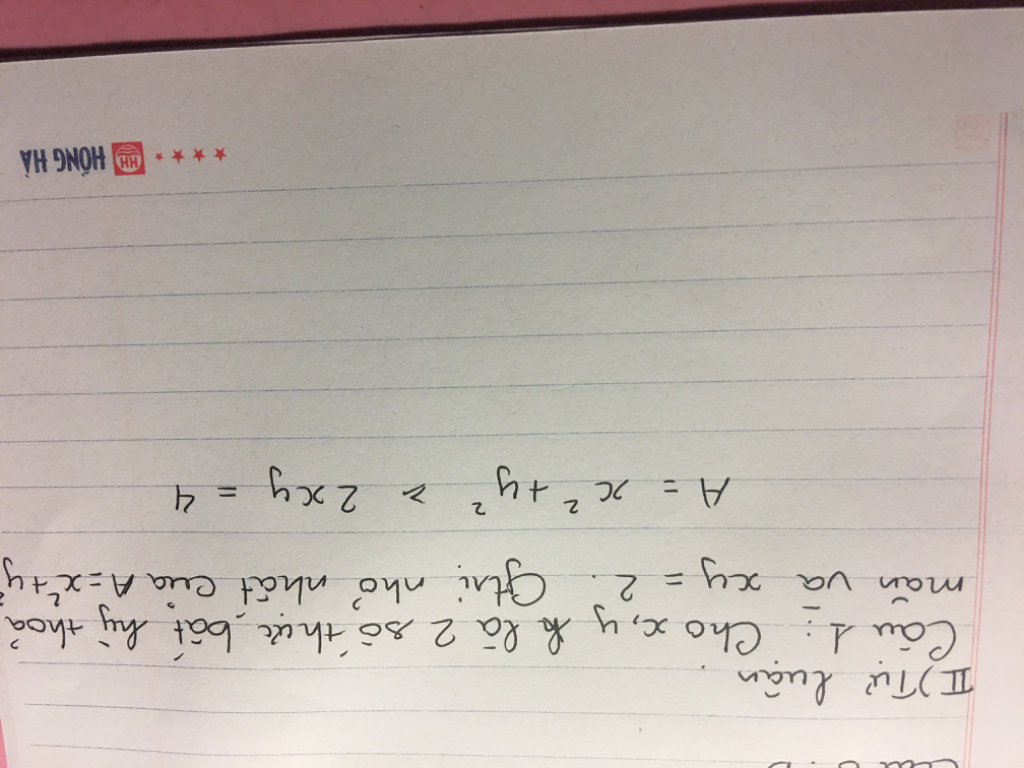 II) Tự luận.
Câu 1: Cho x, y là 2 số thực bất kỳ thoả
mãn và xy = 2. Gtrị nhỏ nhất của A = x² + y²
A = x² + y² ≥ 2xy = 4
HỒNG HÀ